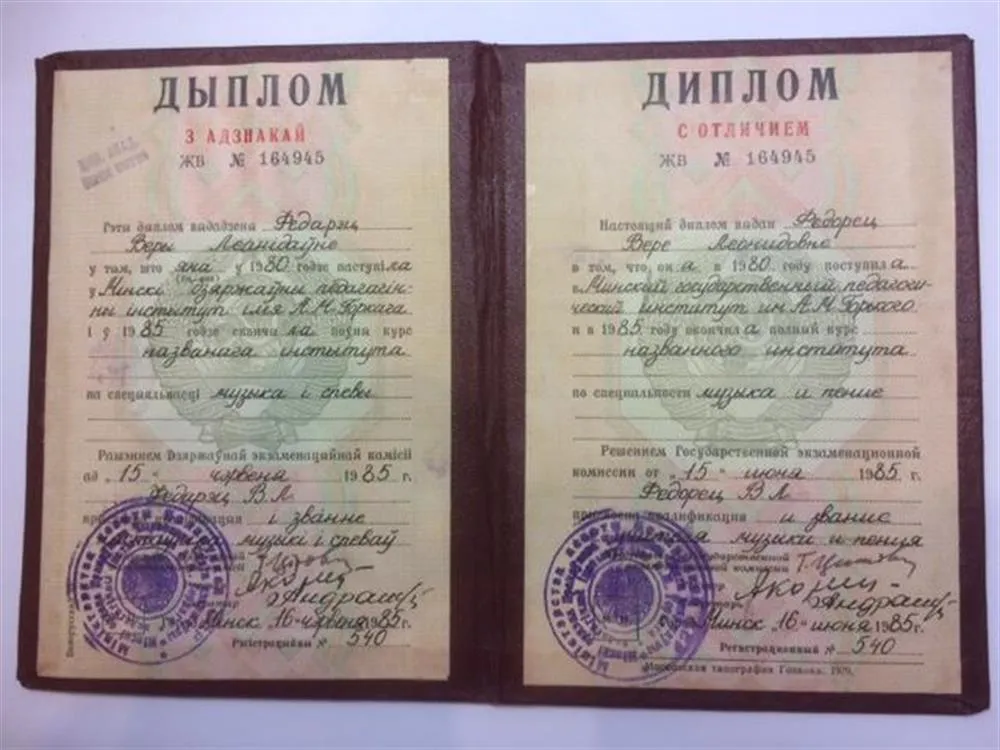 ДЫПЛОМ
З АДЗНАКАЙ
ЖВ № 164945
Гэты дыплом выдадзены Федарэц
Веры Леанідаўне
у тым, што яна у 1980 годзе паступіла
у Мінскі дзяржаўны педагагіч-
ны інстытут імя А.М. Горкага
і ў 1985 годзе скончыла поўны курс
названага інстытута
па спецыяльнасці музыка і спевы
Рашэннем Дзяржаўнай экзаменацыйнай камісіі
ад "15" чэрвеня 1985 г.
Федарэц В Л
і званне
музыкі і спеваў
Мінск "16" чэрвеня 1985 г.
Рэгістрацыйны № 540
ДИПЛОМ
С ОТЛИЧИЕМ
ЖВ № 164945
Настоящий диплом выдан Федорец
Вере Леонидовне
в том, что она в 1980 году поступила
в Минский государственный педагоги-
ческий институт им А.М. Горького
и в 1985 году окончила полный курс
названного института
по специальности музыка и пение
Решением Государственной экзаменационной
комиссии от "15" июня 1985 г.
Федорец В Л
присвоена квалификация и звание
учителя музыки и пения
Минск "16" июня 1985 г.
Регистрационный № 540
Московская типография Гознака. 1979.